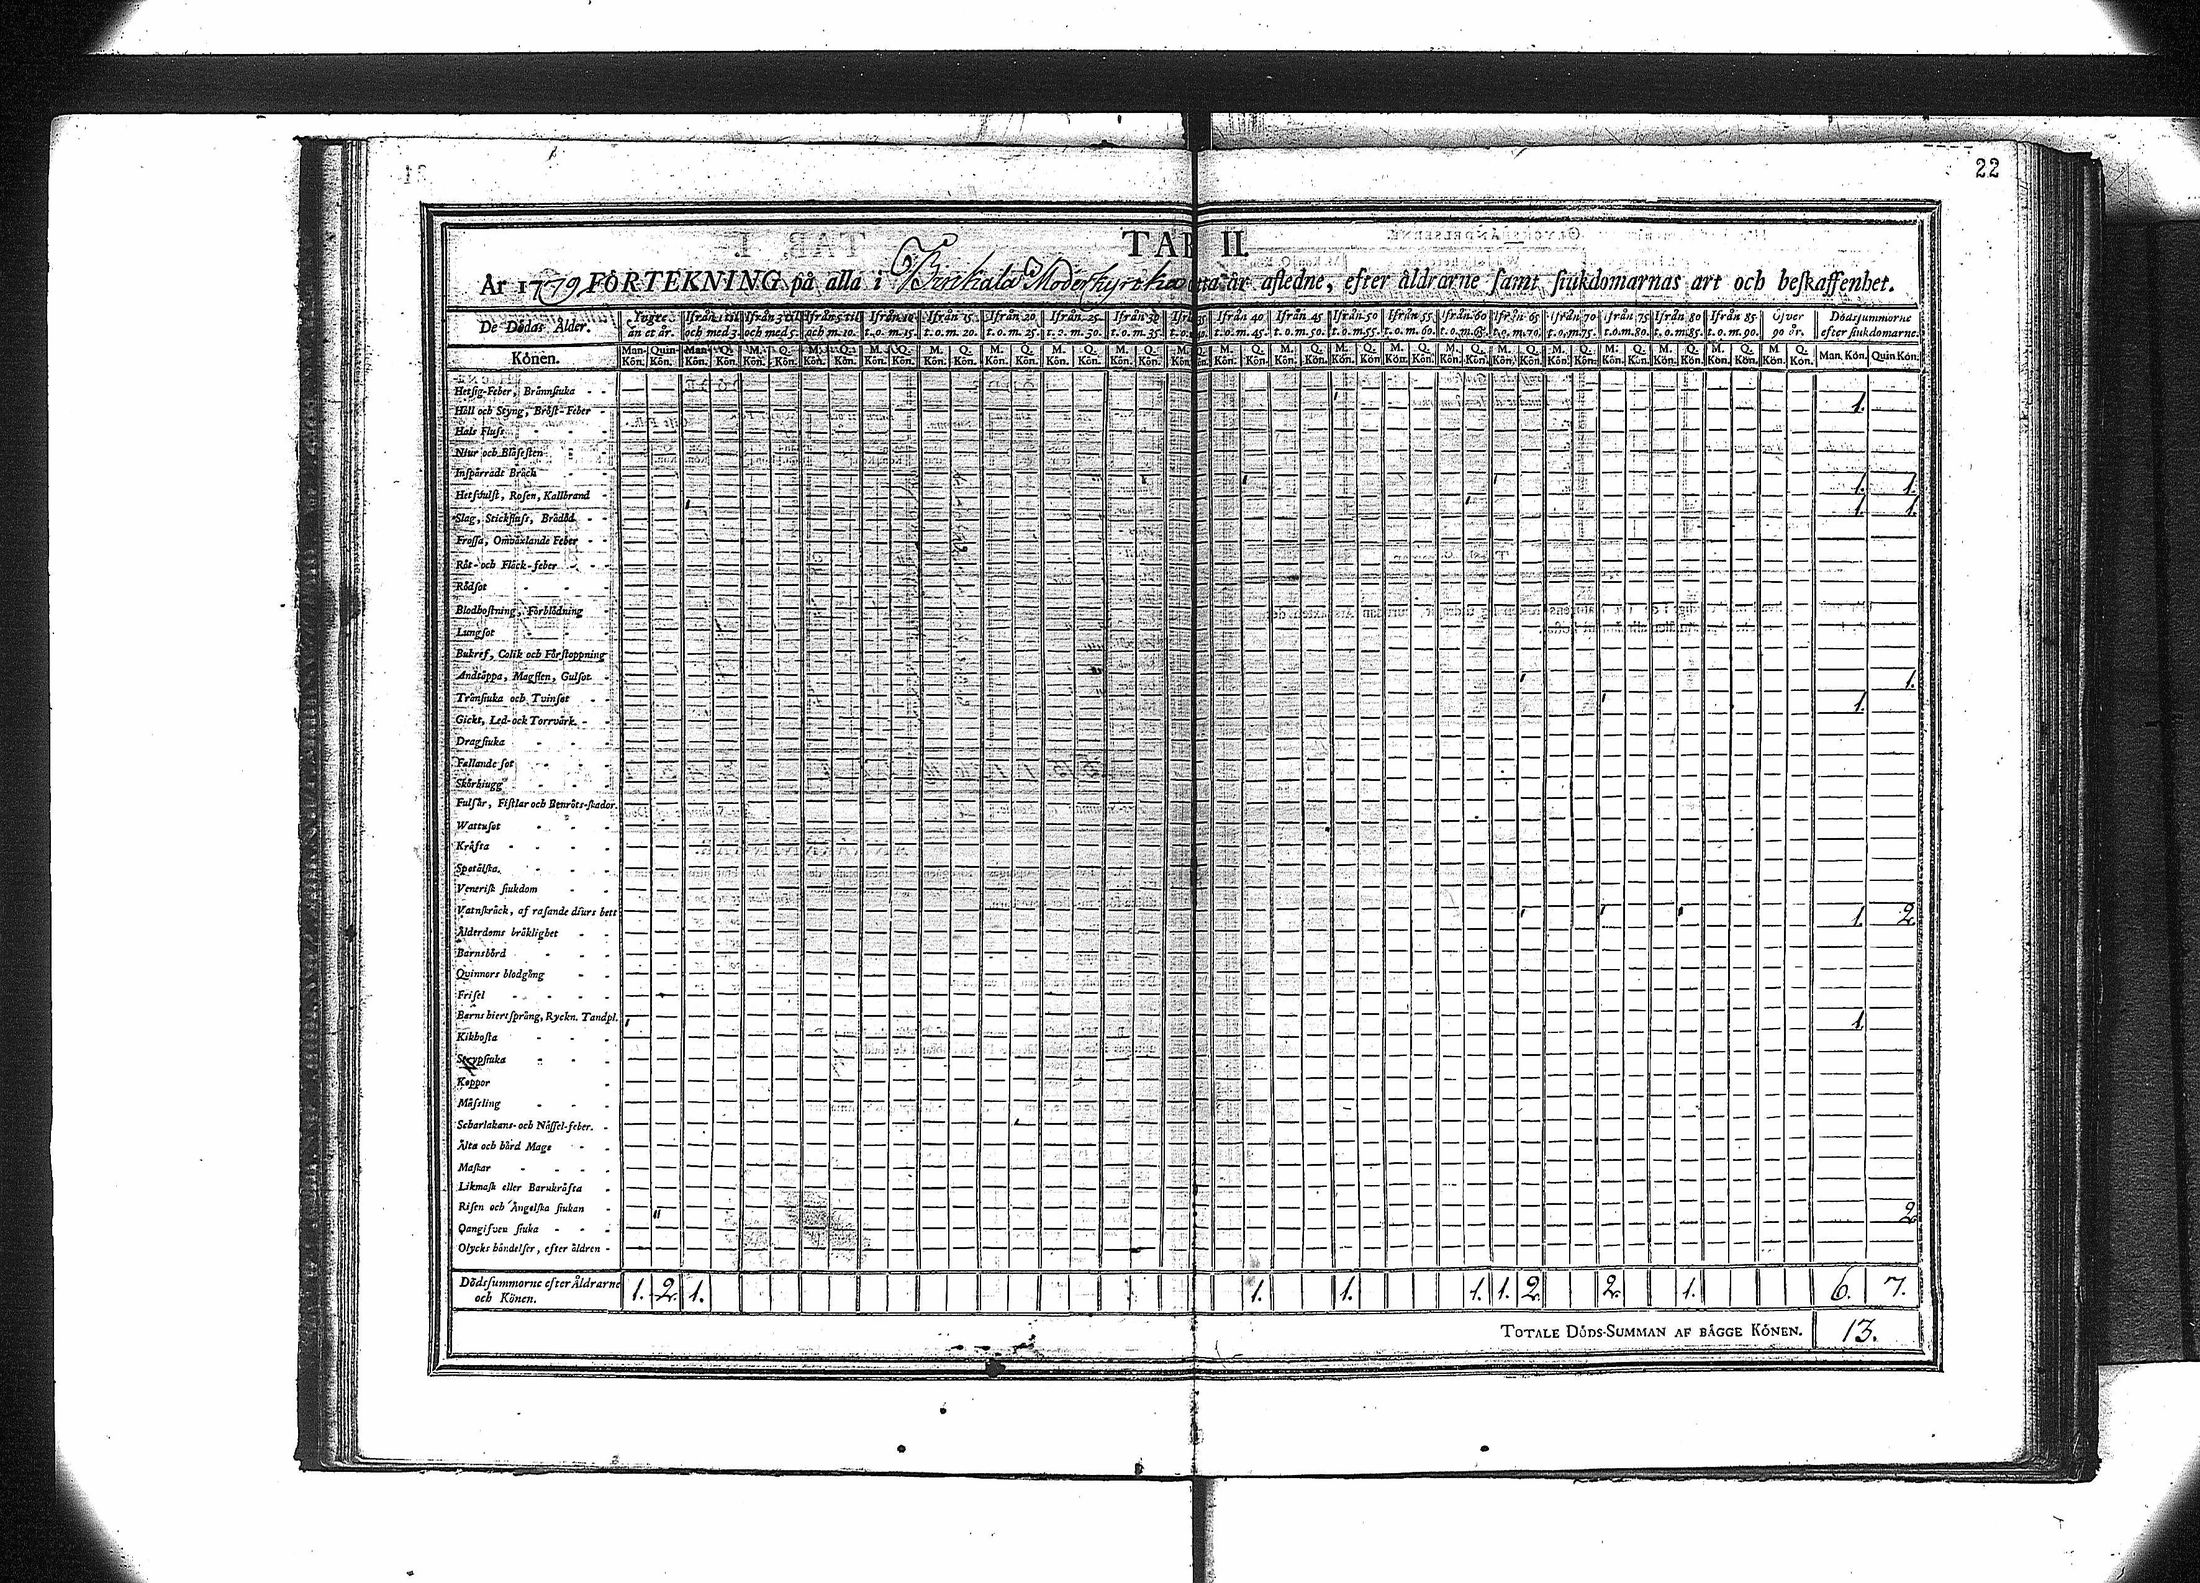 22
TAB II.
År 1779 FÖRTEKNING på alla i Birkala Moderkyrka detta år afledne, efter åldrarne samt siukdomarnas art och beskaffenhet.
De Dödas Ålder. Yngre än et år. Ifrån 1 til och med 3. Ifrån 3 til och med 5. Ifrån 5 til och m. 10. Ifrån 10 t. o. m. 15. Ifrån 15 t. o. m. 20. Ifrån 20 t. o. m. 25. Ifrån 25 t. o. m. 30. Ifrån 30 t. o. m. 35. Ifrån 40 t. o. m. 45. Ifrån 45 t. o. m. 50. Ifrån 50 t. o. m. 55. Ifrån 55 t. o. m. 60. Ifrån 60 t. o. m. 65. Ifrån 65 t. o. m. 70. Ifrån 70 t. o. m. 75. Ifrån 75 t. o. m. 80. Ifrån 80 t. o. m. 85. Ifrån 85 t. o. m. 90. Öfver 90 år. Dödssummorne efter siukdomarne.
Könen. Man-Kön. Quin-Kön. Man-Kön. Q. Kön. M. Kön. Q. Kön. M. Kön. Q. Kön. M. Kön. Q. Kön. M. Kön. Q. Kön. M. Kön. Q. Kön. M. Kön. Q. Kön. M. Kön. Q. Kön. M. Kön. Q. Kön. M. Kön. Q. Kön. M. Kön. Q. Kön. M. Kön. Q. Kön. M. Kön. Q. Kön. M. Kön. Q. Kön. M. Kön. Q. Kön. M. Kön. Q. Kön. M. Kön. Q. Kön. M. Kön. Q. Kön. M. Kön. Q. Kön. Man. Kön. Quin. Kön.
Hetsig-Feber, Brännsiuka
Håll och Styng, Bröst-Feber 1 1.
Hals Fluss
Niur och Blåsesten
Inspärradt Bråck
Hetsvulst, Rosen, Kallbrand 1 1 1. 1.
Slag, Stickfluss, Brådöd 1 1 1. 1.
Frossa, Omväxlande Feber
Röt- och Fläck-feber
Rödsot
Blodhostning, Förblödning
Lungsot
Bukref, Colik och Förstoppning
Andtäppa, Magsten, Gulsot 1 1.
Trånsiuka och Tvinsot 1 1.
Gickt, Led- ock Torrvärk
Dragsiuka
Fallande sot
Skörbiugg
Fulsår, Fistlar och Benröts-skador.
Wattusot
Kräfta
Spetälska.
Venerisk siukdom
Vatnskräck, af rasande diurs bett 1 1 1 1. 2
Ålderdoms bräklighet
Barnsbörd
Quinnors blodgång
Frisel
Barns hiertsprång, Ryckn. Tandpl. 1 1.
Kikhosta
Strypsiuka
Koppor
Mässling
Scharlakans- och Nässel-feber.
Älta och hård Mage
Maskar
Likmask eller Barnkräfta
Risen och Ängelska siukan
Oangifven siuka 11 2
Olycks händelser, efter åldren
Dödssummorne efter Åldrarne 1. 2. 1. 1. 1. 1. 1. 2. 2. 1. 6. 7.
och Könen.
TOTALE DÖDS-SUMMAN AF BÄGGE KÖNEN. 13.